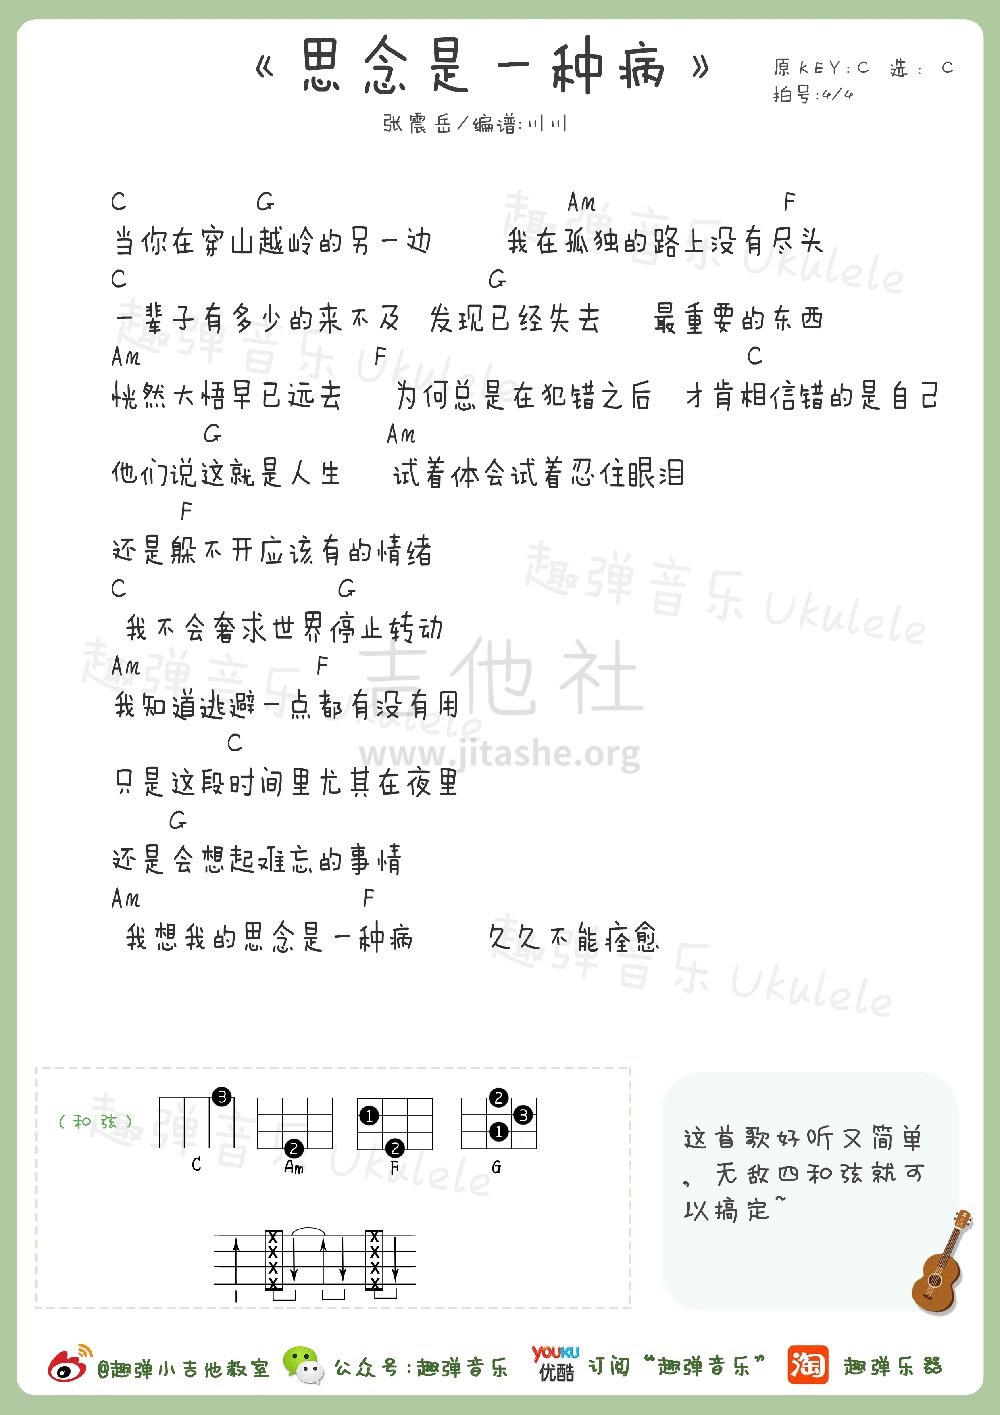 《思念是一种病》
原KEY:C 选: C
拍号:4/4
张震岳/编谱:川川
C G Am F
当你在穿山越岭的另一边 我在孤独的路上没有尽头
C G
一辈子有多少的来不及 发现已经失去 最重要的东西
Am F C
恍然大悟早已远去 为何总是在犯错之后 才肯相信错的是自己
G Am
他们说这就是人生 试着体会试着忍住眼泪
F
还是躲不开应该有的情绪
C G
我不会奢求世界停止转动
Am F
我知道逃避一点都有没有用
C
只是这段时间里尤其在夜里
G
还是会想起难忘的事情
Am F
我想我的思念是一种病 久久不能痊愈
趣弹音乐 Ukulele
趣弹音乐 Ukulele
趣弹音乐 Ukulele
趣弹音乐 Ukulele
趣弹音乐 Ukulele
趣弹音乐 Ukulele
吉他社
www.jitashe.org
(和弦)
3 2 1 2 2 3 1
C Am F G
X X
X X
X X
X X
这首歌好听又简单
，无敌四和弦就可
以搞定~
@趣弹小吉他教室 公众号:趣弹音乐 YOUKU 优酷 订阅“趣弹音乐” 淘 趣弹乐器